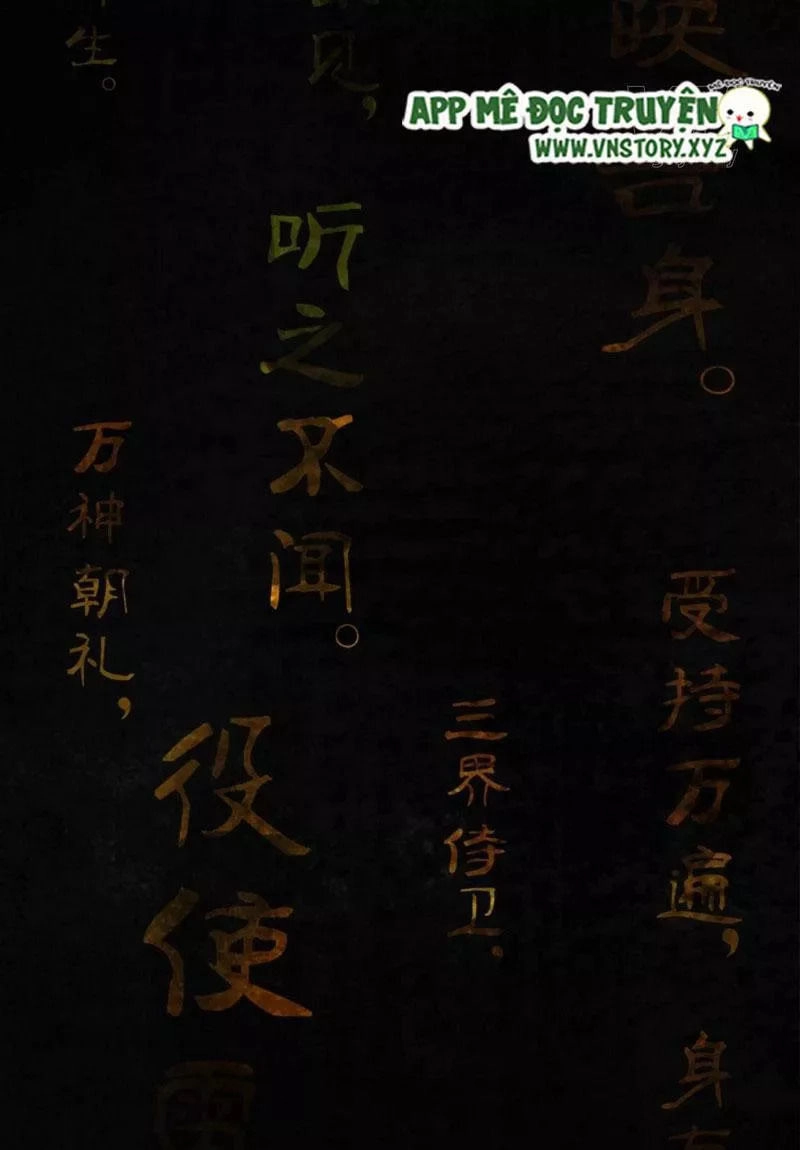 APP MÊ ĐỌC TRUYỆN
MÊ ĐỌC TRUYỆN
WWW.VNSTORY.XYZ
映吾身。
受持万遍，
身有
三界侍卫，
见，
听之不闻。
役使雷
生。
万神朝礼，